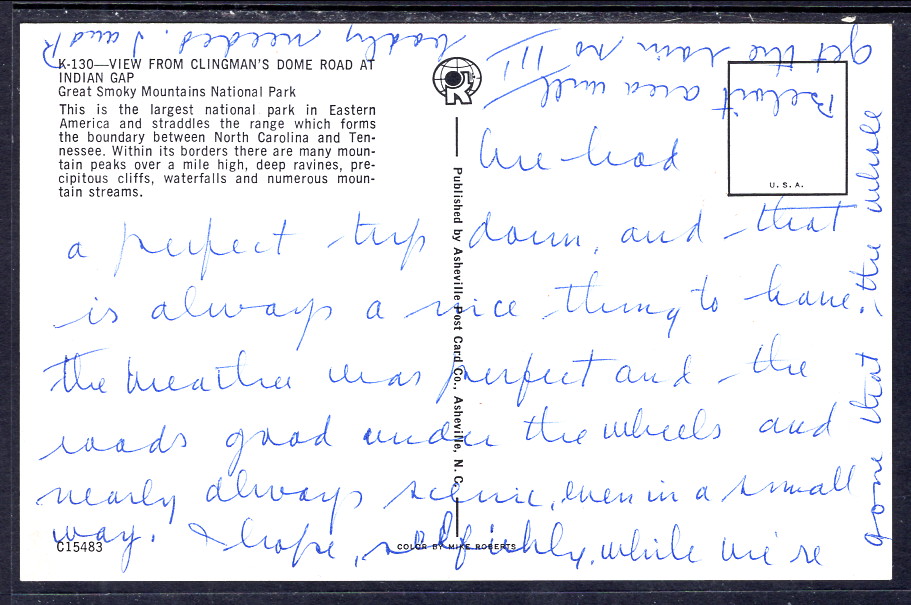 K-130—VIEW FROM CLINGMAN'S DOME ROAD AT
INDIAN GAP
Great Smoky Mountains National Park
This is the largest national park in Eastern
America and straddles the range which forms
the boundary between North Carolina and Ten-
nessee. Within its borders there are many moun-
tain peaks over a mile high, deep ravines, pre-
cipitous cliffs, waterfalls and numerous moun-
tain streams.
Published by Asheville Post Card Co., Asheville, N. C.
U. S. A.
C15483
COLOR BY MIKE ROBERTS
We had
a perfect trip down, and that
is always a nice thing to have.
the weather was perfect and the
roads good under the wheels and
nearly always scenic, even in a small
way. I hope, selfishly, while we're
gone that the whole
Beloit area will
get the rain, so
badly needed. J and R